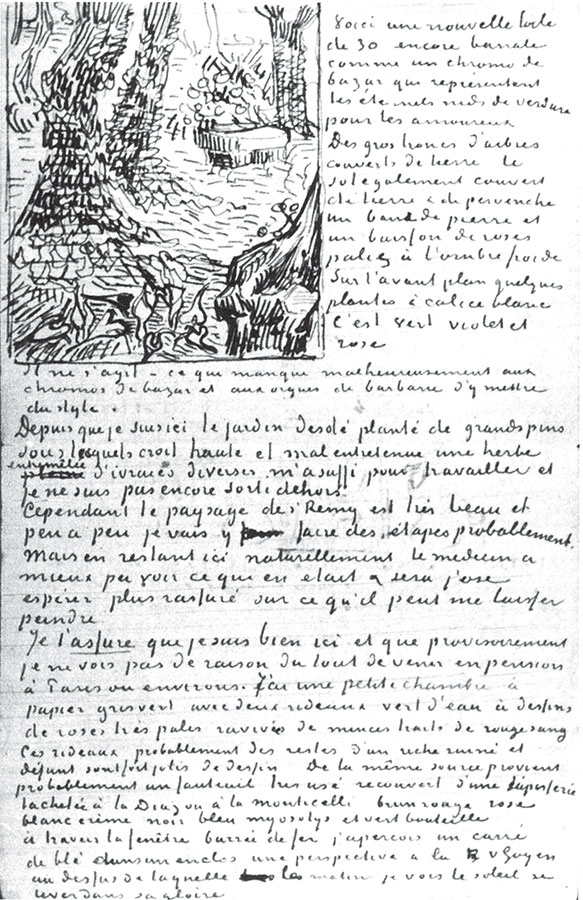 Voici une nouvelle toile
de 30 encore banale
comme un chromo de
bazar qui représentent
les éternels nids de verdure
pour les amoureux
Des gros troncs d'arbres
couverts de lierre le
sol également couvert
de lierre & de pervenche
un banc de pierre et
un buisson de roses
pales à l'ombre froide
Sur l'avant plan quelques
plantes à calice blanc
C'est vert violet et
rose
Il ne s'agit – ce qui manque malheureusement aux
chromos de bazar et aux orgues de barbarie d'y mettre
du style.
Depuis que je suis ici le jardin desolé planté de grands pins
sous lesquels croit haute et mal entretenue une herbe
entremêlée d'ivraies diverses m'a suffi pour travailler et
je ne suis pas encore sorti dehors.
Cependant le paysage de St Remy est très beau et
peu a peu je vais y faire des étapes probablement.
Mais en restant ici naturellement le medecin a
mieux pu voir ce qui en etait & sera j'ose
espérer plus rassuré sur ce qu'il peut me laisser
peindre
Je t'assure que je suis bien ici et que provisoirement
je ne vois pas de raison du tout de venir en pension
à Paris ou environs. J'ai une petite chambre à
papier gris vert avec deux rideaux vert d'eau à dessins
de roses très pales ravivés de minces traits de rouge sang
Ces rideaux probablement des restes d'un riche ruiné et
défunt sont fort jolis de dessin De la même source provient
probablement un fauteuil très usé recouvert d'une tapisserie
tachetée à la Diaz ou à la Monticelli brun rouge rose
blanc crème noir bleu myosotys et vert bouteille
à travers la fenêtre barrée de fer j'aperçois un carré
de blé dans un enclos une perspective a la v Goyen
au dessus de laquelle le matin je vois le soleil se
lever dans sa gloire